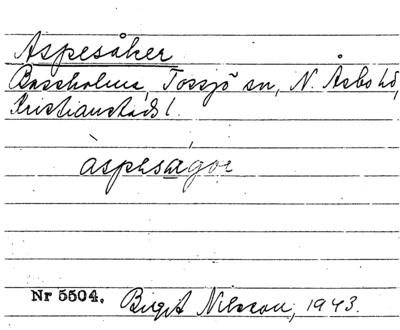 Aspesåker
Bassholma, Tossjö sn, N. Åsbo hd,
Kristianstads l.
àspeságor
Nr 5504. Birgit Nilsson, 1943.